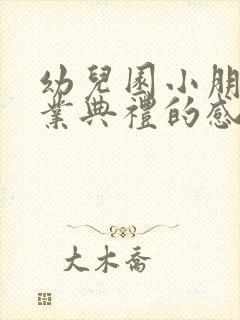 幼兒園小朋
業典禮的感
大木喬